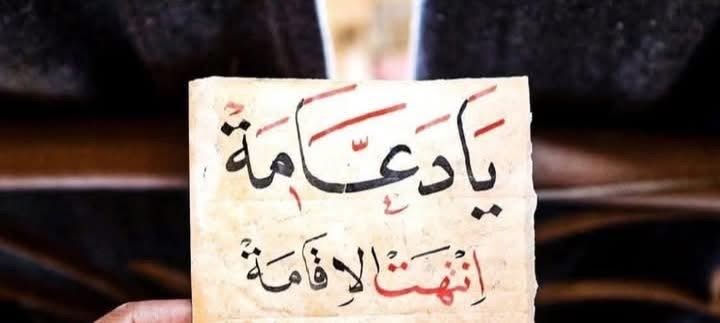 يَا دَعَّامَةْ
اِنْتَهَتْ الاِقَامَةْ